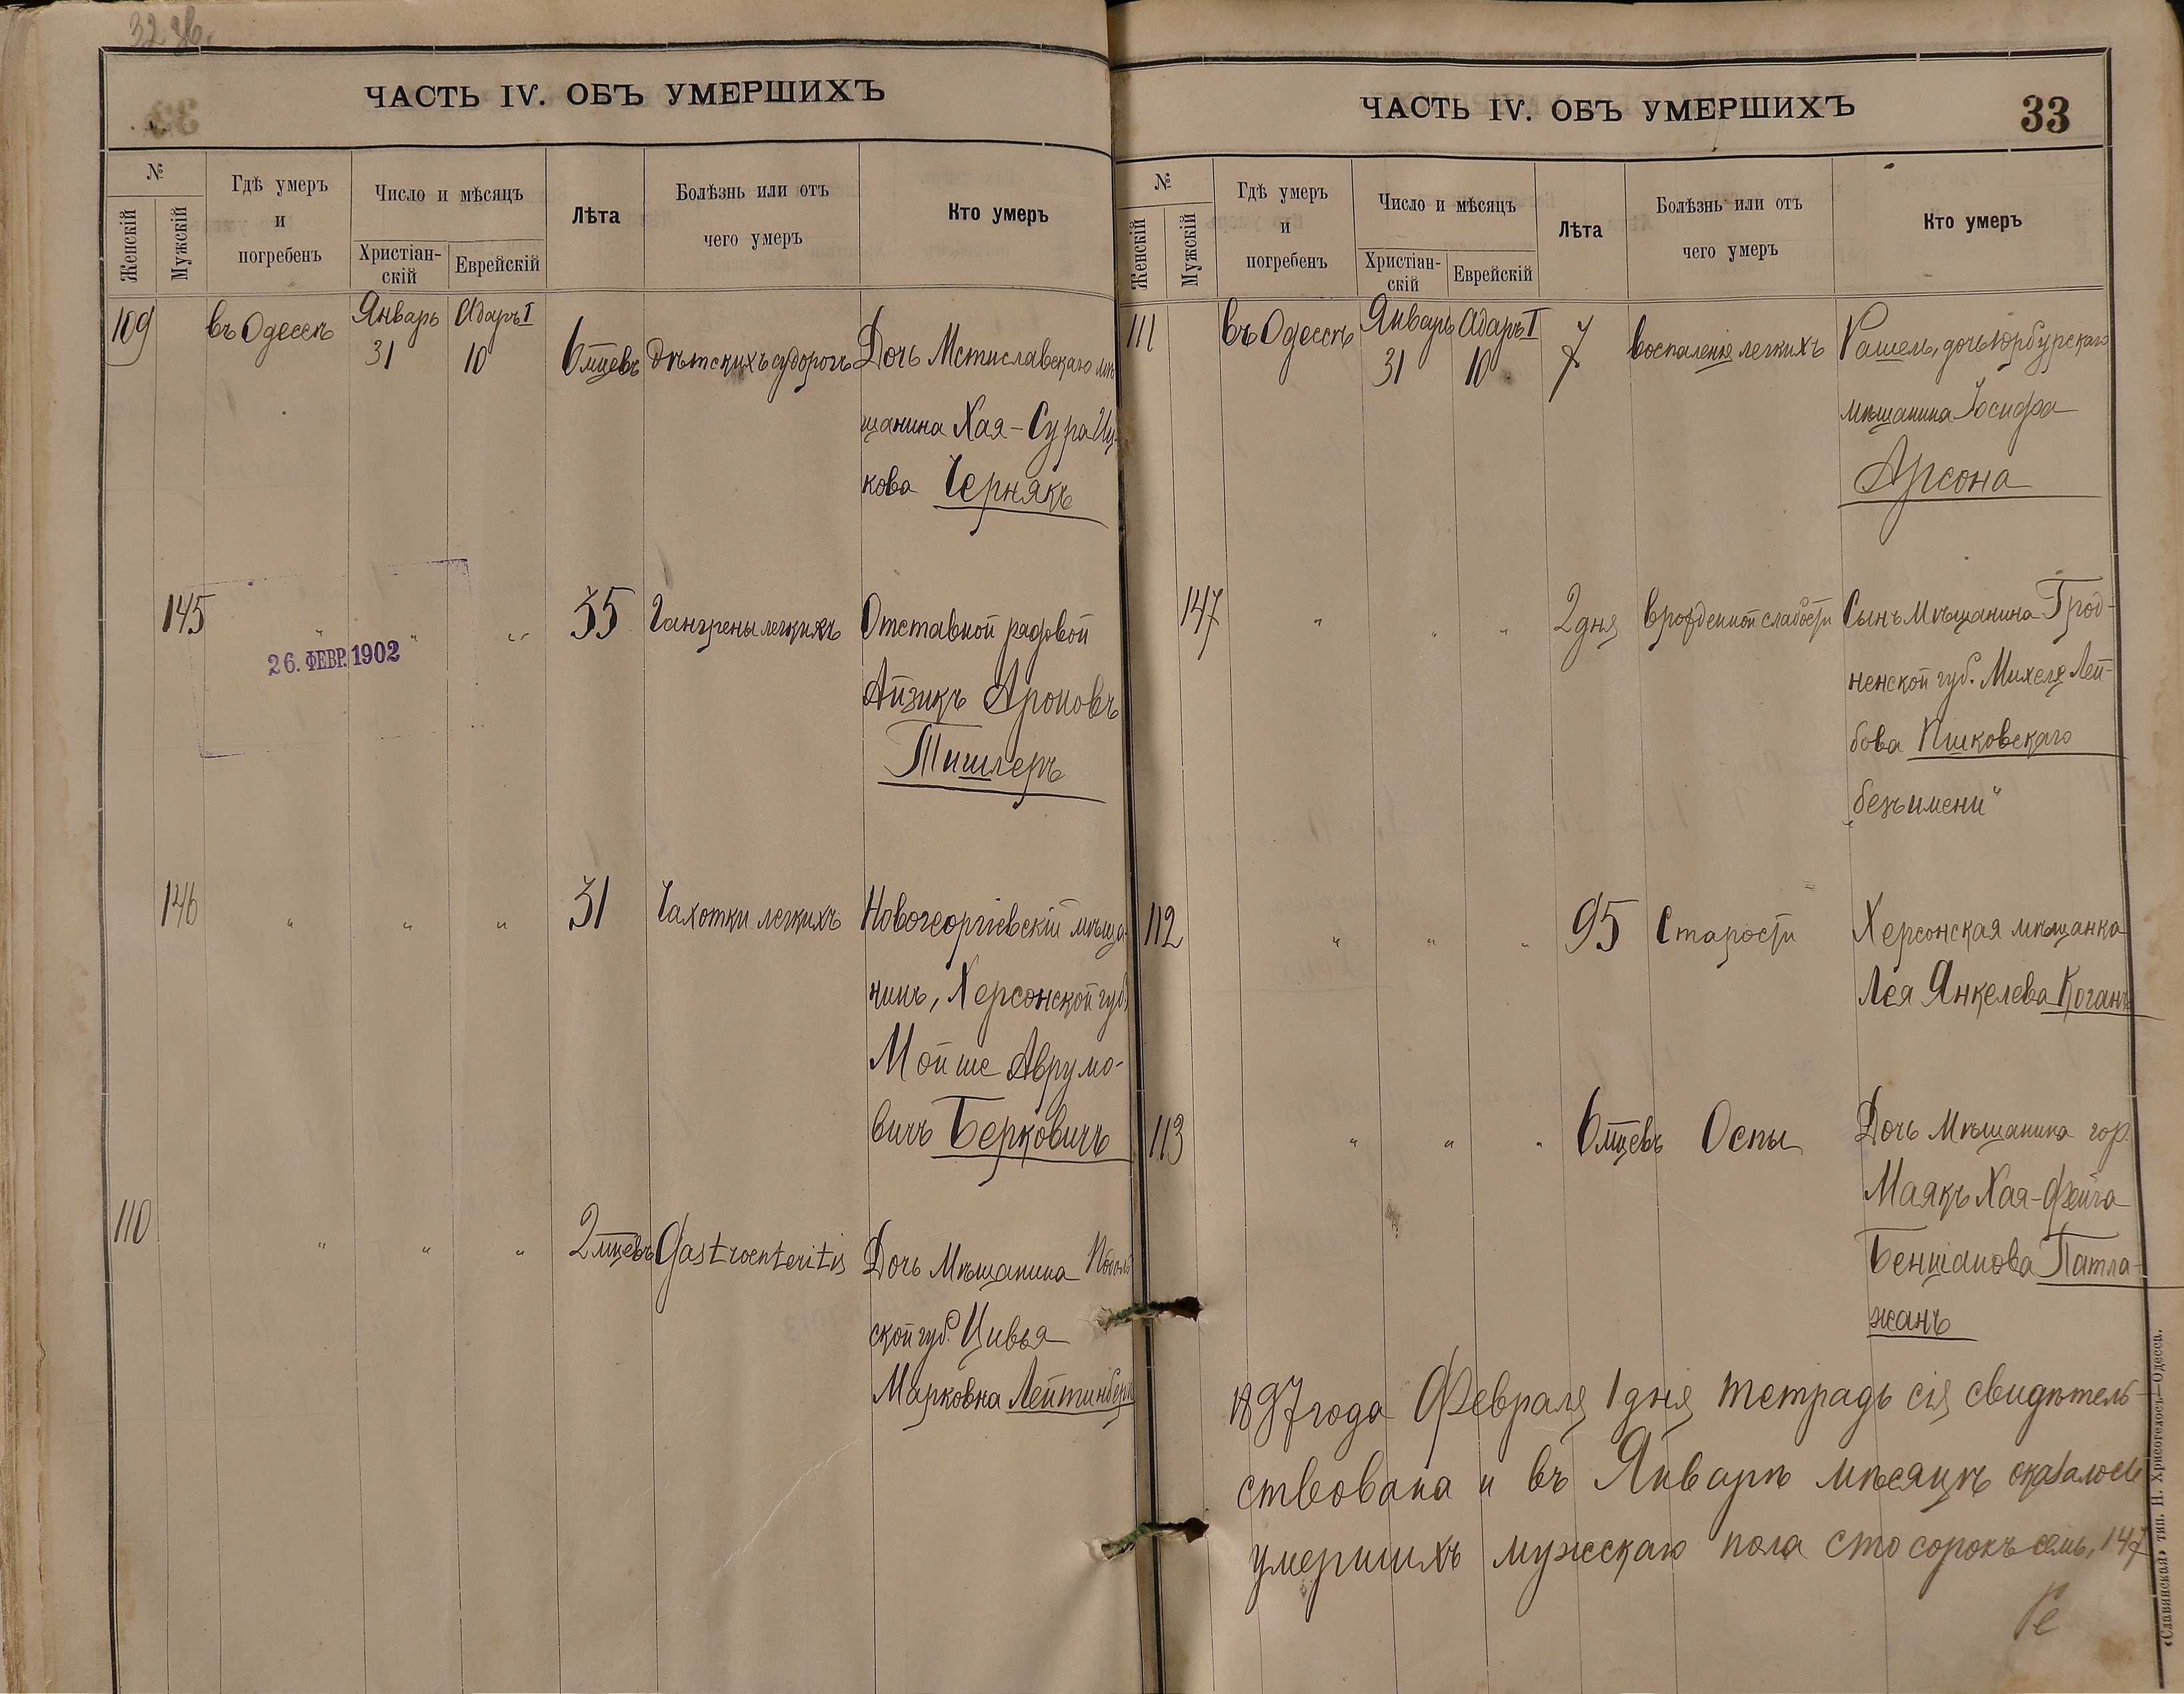 32 об.
ЧАСТЬ IV. ОБЪ УМЕРШИХЪ
№
Женскій
Мужскій
Гдѣ умеръ
и
погребенъ
Число и мѣсяцъ
Христіан-
скій
Еврейскій
Лѣта
Болѣзнь или отъ
чего умеръ
Кто умеръ
109 въ Одессѣ Январь 31 Адаръ I 10 6 мцевъ Дѣтскихъ судорогъ Дочь Мстиславскаго мѣ
щанина Хая-Сура Иц-
кова Чернякъ
145 " " " 35 Гангрены легкихъ Отставной рядовой
Айзикъ Ароновъ
Тишлеръ
26. ФЕВР. 1902
146 " " " 31 Чахотки легкихъ Новогеоргіевскій мѣща-
нинъ, Херсонской губ.
Мойше Аврумо-
вичъ Берковичъ
110 " " " 2 мцевъ Gastroenteritis Дочь Мѣщанина Подоль
ской губ. Цивья
Марковна Лейтинбергъ
ЧАСТЬ IV. ОБЪ УМЕРШИХЪ
33
№
Женскій
Мужскій
Гдѣ умеръ
и
погребенъ
Число и мѣсяцъ
Христіан-
скій
Еврейскій
Лѣта
Болѣзнь или отъ
чего умеръ
Кто умеръ
111 въ Одессѣ Январь 31 Адаръ I 10 7 воспаленія легкихъ Рашель, дочь Юрбурскаго
мѣщанина Іосифа
Арсона
147 " " " 2 дня врожденной слабости Сынъ Мѣщанина Грод-
ненской губ. Михеля Лей-
бова Пиковскаго
"безъ имени"
112 " " " 95 Старости Херсонская мѣщанка
Лея Янкелева Коганъ
113 " " " 6 мцевъ Оспы Дочь Мѣщанина гор.
Маякъ Хая-Фейга
Беншанова Патла-
жанъ
1897 года Февраля 1 дня тетрадь сія свидѣтель-
ствована и въ Январѣ мѣсяцѣ оказалось
умершихъ мужскаго пола сто сорокъ семь, 147
«Славянская» тип. Н. Хрисогелосъ.—Одесса.